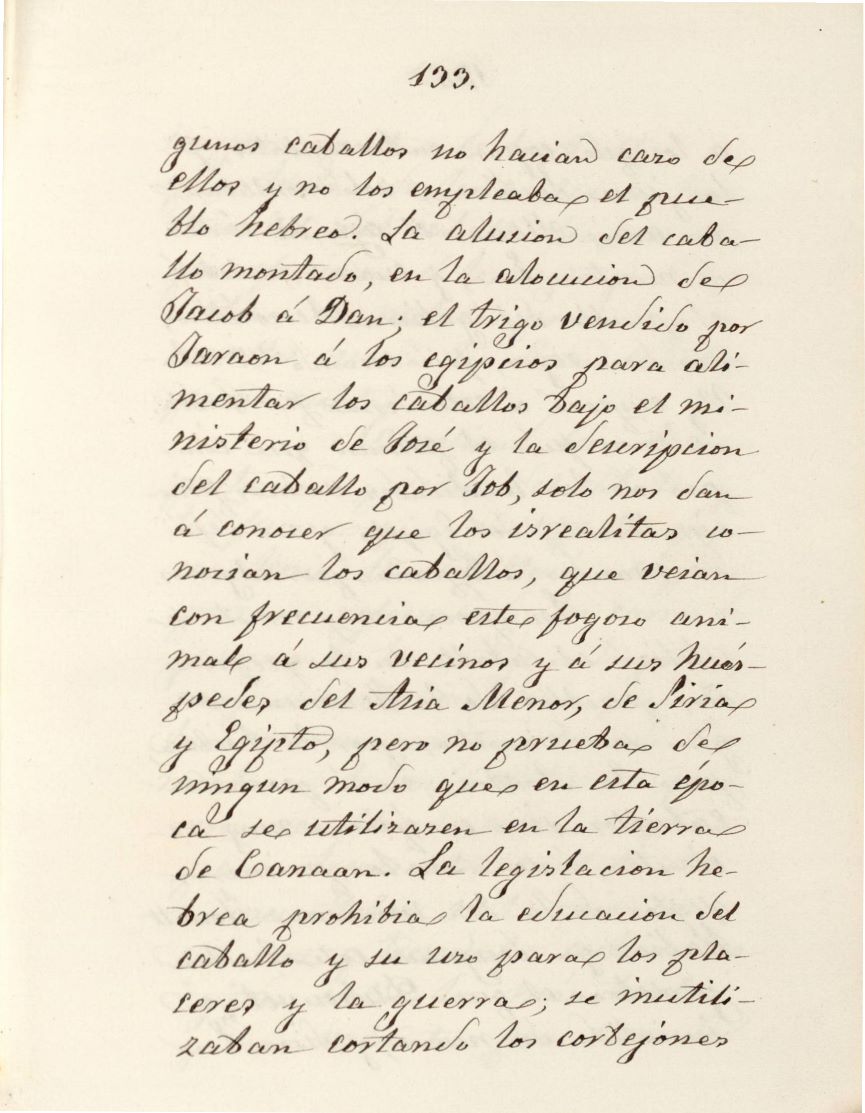 133.
gunos caballos no hacian cazo de
ellos y no los empleaba el pue-
blo hebreo. La aluzion del caba-
llo montado, en la alocucion de
Jacob á Dan; el trigo vendido por
Faraon á los egipcios para ali-
mentar los caballos bajo el mi-
nisterio de José y la descripcion
del caballo por Job, solo nos dan
á conocer que los isrealitas co-
nocian los caballos, que veian
con frecuencia este fogoso ani-
mal á sus vecinos y á sus hués-
pedes del Asia Menor, de Siria
y Egipto, pero no prueba de
ningun modo que en esta épo-
ca se utilizazen en la tierra
de Canaan. La legislacion he-
brea prohibia la educacion del
caballo y su uzo para los pla-
ceres y la guerra; se inutili-
zaban cortando los corbejones